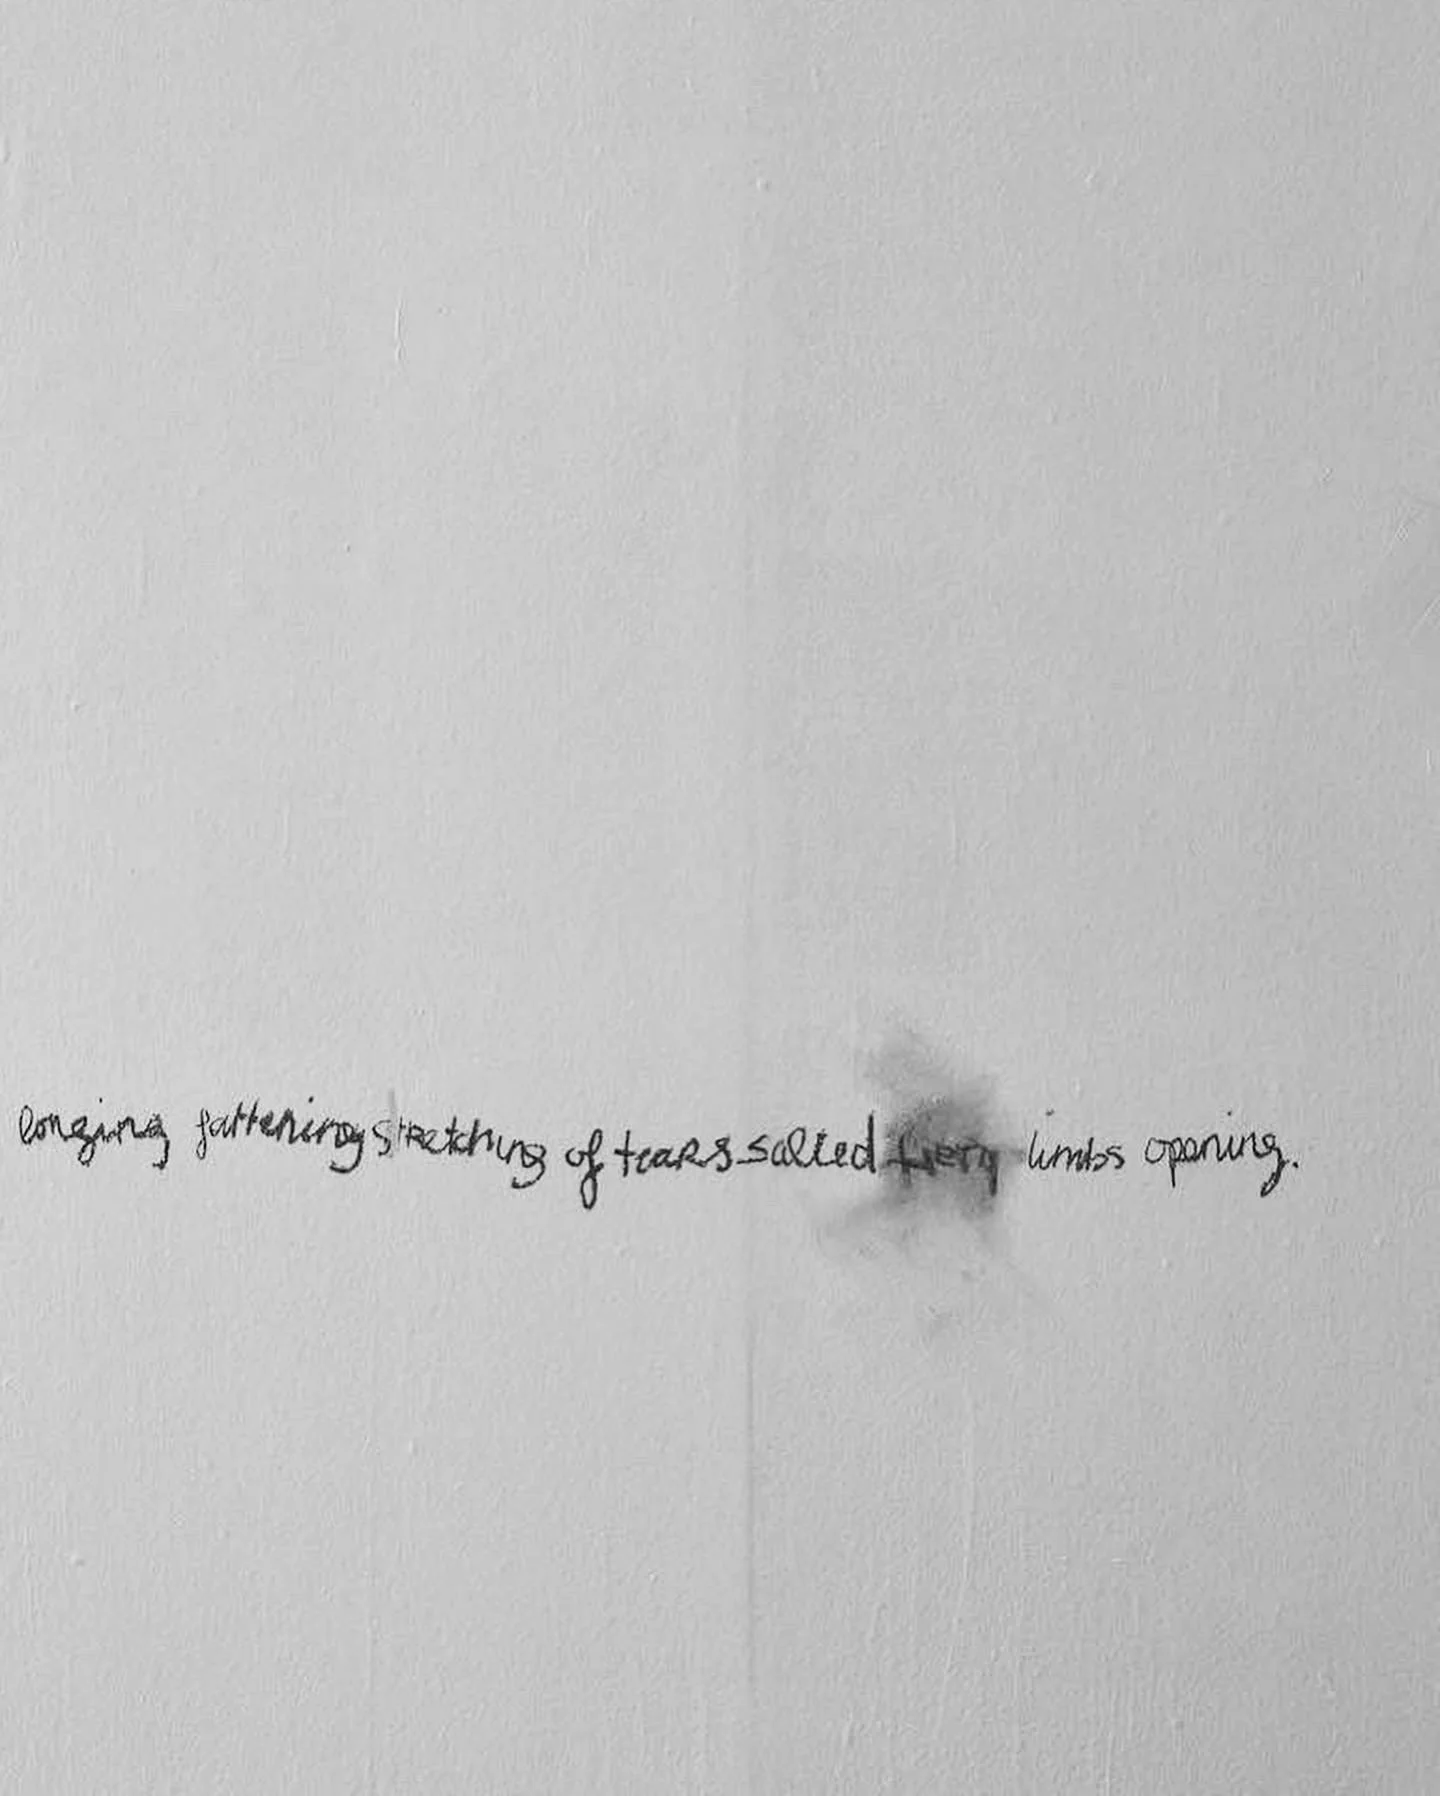 longing fattening stretching of tears salted fiery limbs opening.